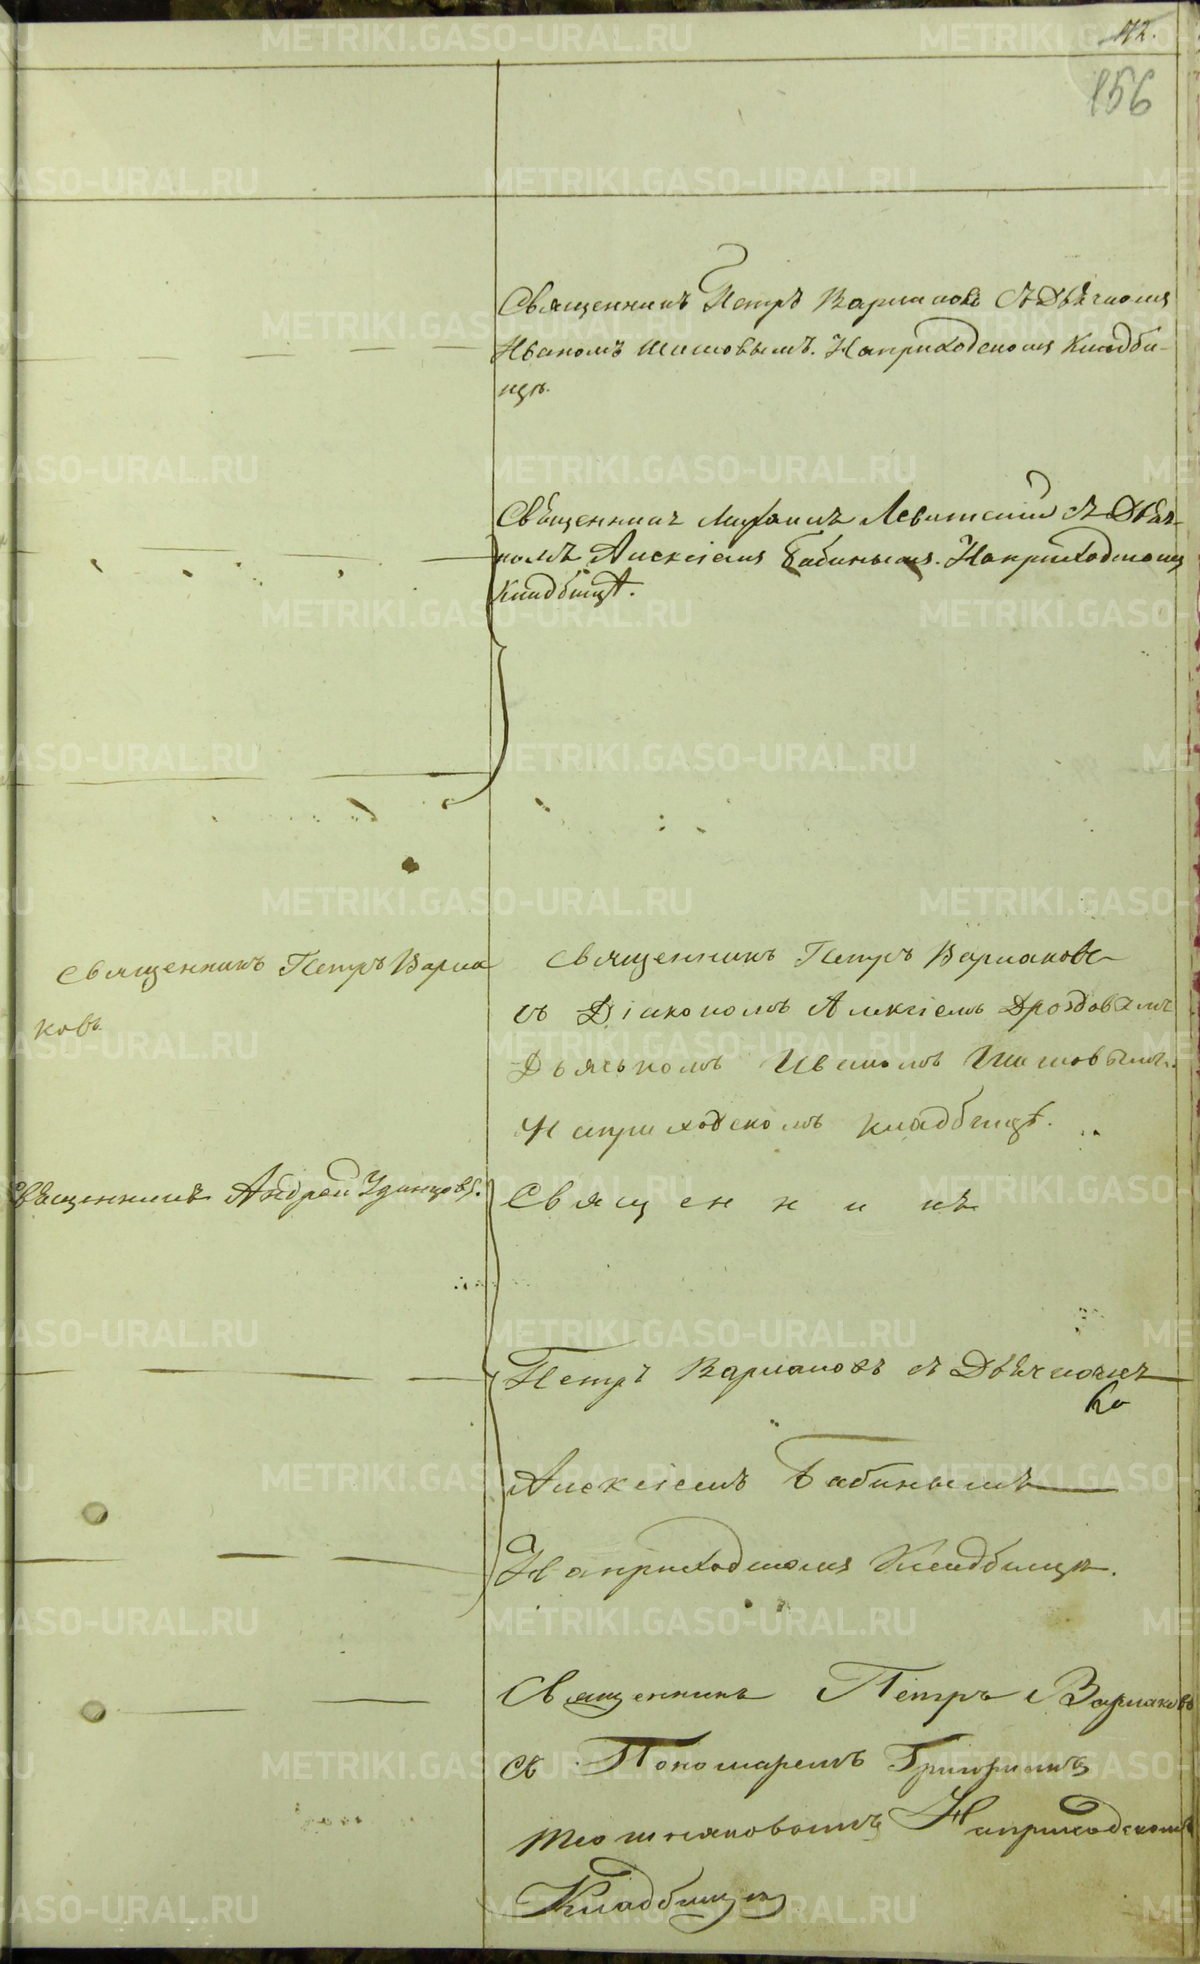 172.
156
Священникъ Петръ Варлаковъ съ Дьячкомъ
Иваномъ Шишовымъ. На приходскомъ Кладби-
щѣ.
Священникъ Михаилъ Левитскій съ Дьяч-
комъ Алексіемъ Бабинымъ. На приходскомъ
Кладбищѣ.
Священникъ Петръ Варла
ковъ
Священникъ Петръ Варлаковъ
съ Діакономъ Алексіемъ Дроздовымъ
Дьячькомъ Иваномъ Шишовымъ.
На приходскомъ кладбищѣ.
Священникъ Андрей Удинцовъ.
Священникъ
Петръ Варлаковъ съ Дьячкомъ
Алексіемъ Бабинымъ
На приходскомъ Кладбищѣ.
Священникъ Петръ Варлаковъ
съ Пономаремъ Григоріемъ
На приходскомъ
Кладбищѣ